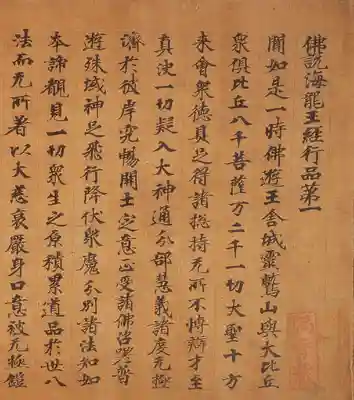 佛說海龍王經行品第一
聞如是一時佛遊王舍城靈鷲山與大比丘
衆俱比丘八千菩薩万二千一切大聖十方
來會衆德具足得諸揔持无所不博辯才至
真決一切疑入大神通分部慧義諸度无極
濟於彼岸究暢開士定意正受諸佛咨嗟普
遊殊域神足飛行降伏衆魔分別諸法知如
本諦觀見一切衆生之原積累道品於世八
法而无所著以大慈哀嚴身口意被无極鎧